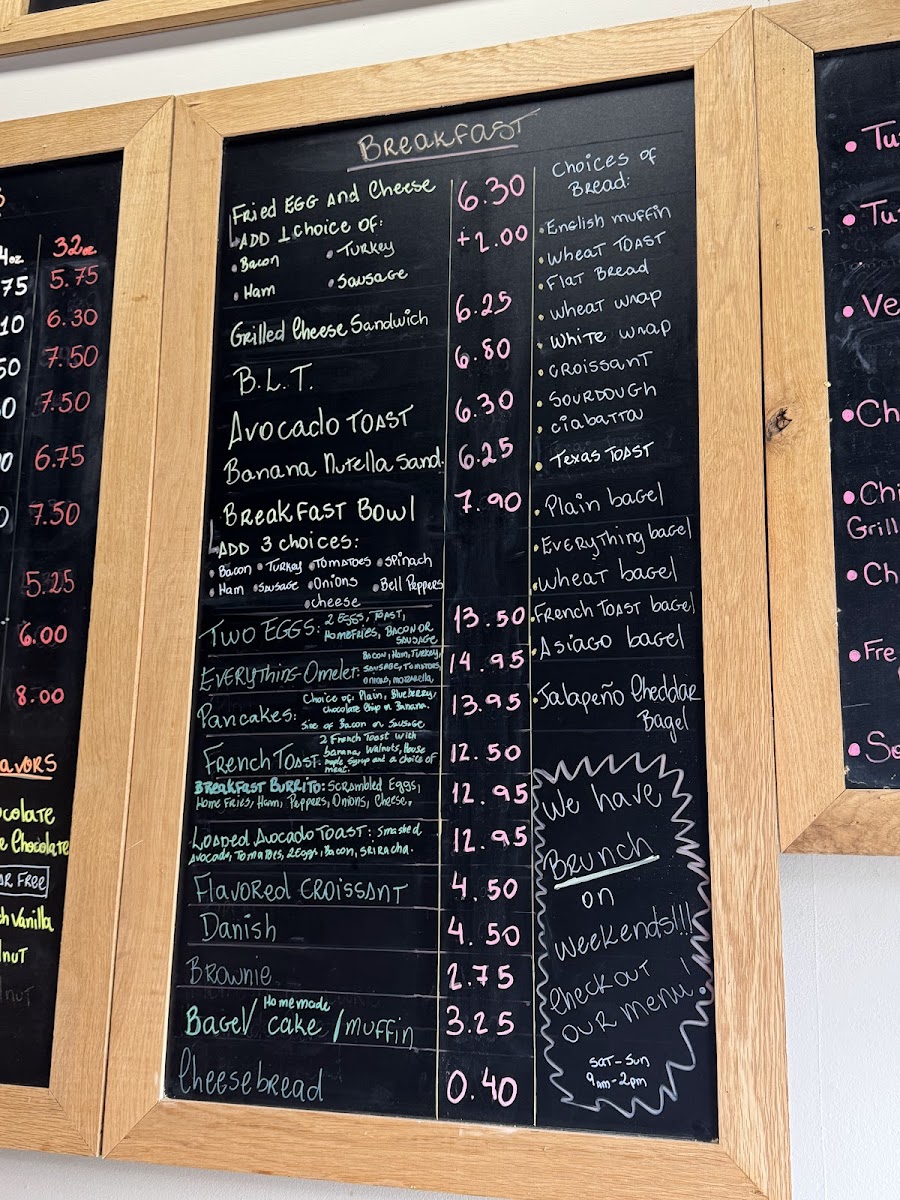 4oz 32oz
75 5.75
10 6.30
50 7.50
7.50
6.75
7.50
5.25
6.00
8.00
avors
Chocolate
FREE
Vanilla
Breakfast
Fried Egg and Cheese 6.30
ADD 1 Choice of: +2.00
• Bacon • Turkey
• Ham • Sausage
Grilled Cheese Sandwich 6.25
B.L.T. 6.80
Avocado Toast 6.30
Banana Nutella Sand. 6.25
Breakfast Bowl 7.90
ADD 3 choices:
• Bacon • Turkey • Tomatoes • Spinach
• Ham • Sausage • Onions • Bell Peppers
• Cheese
Two Eggs: 2 Eggs, Toast, 13.50
Homefries, Bacon or
Sausage
Everything Omelet: Bacon, Ham, Turkey, 14.95
Sausage, Tomatoes,
Onions, Mozzarella,
Pancakes: Choice of: Plain, Blueberry, 13.95
Chocolate Chip or Banana.
Side of Bacon or Sausage
French Toast: 2 French Toast with 12.50
banana, Walnuts, House
maple syrup and a choice of
meat.
Breakfast Burrito: Scrambled Eggs, 12.95
Home Fries, Ham, Peppers, Onions, Cheese.
Loaded Avocado Toast: Smashed 12.95
Avocado, Tomatoes, 2 Eggs, Bacon, Sriracha.
Flavored Croissant 4.50
Danish 4.50
Brownie 2.75
Bagel/ Homemade cake /muffin 3.25
Cheesebread 0.40
Choices of
Bread:
• English muffin
• Wheat Toast
• Flat Bread
• Wheat wrap
• White wrap
• Croissant
• Sourdough
• Ciabatta
• Texas Toast
• Plain bagel
• Everything bagel
• Wheat bagel
• French Toast bagel
• Asiago bagel
• Jalapeño Cheddar
Bagel
We have
Brunch
on
weekends!!!
Check out
our menu!
Sat-Sun
9am-2pm
• Tu
• Tu
• Ve
• Ch
• Chi
Grill
• Ch
• Fre